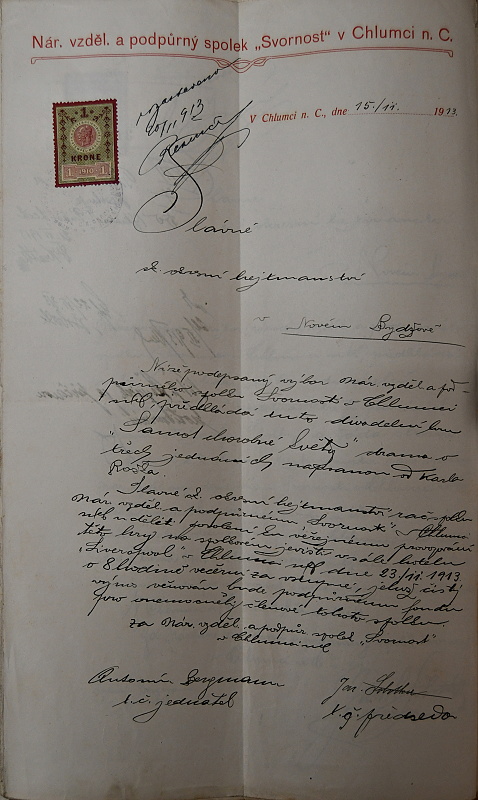 Nár. vzděl. a podpůrný spolek „Svornost" v Chlumci n. C.
V Chlumci n. C., dne 15./11. 1913.
20/11 913
1
KRONE
1 1910 1
Slavné
c. k. okresní hejtmanství
v Novém Bydžově
Níže podepsaný výbor Nár. vzděl. a pod-
půrného spolku Svornosti v Chlumci
n/C předkládá tuto divadelní hru
„Samot choroбné Světy" drama o
třech jednáních napsanou od Karla
Rožka.
Slavné c. k. okresní hejtmanství račiž spolku
nár. vzděl. a podpůrnému „Svornost" v Chlumci
n/C uděliti povolení ku veřejnému provozování
této hry na spolkovém jevišti v sále hotelu
„Liverpool" v Chlumci n/C dne 23./11 1913
o 8 hodině večerní za vstupné, jehož čistý
výnos věnován bude podpůrnému fondu
pro onemocnělé členové tohoto spolku.
Za Nár. vzděl. a podpůr. spolek „Svornost"
v Chlumci n/C
Antonín Bergmann
t. č. jednatel
Jos.
t. č. předseda